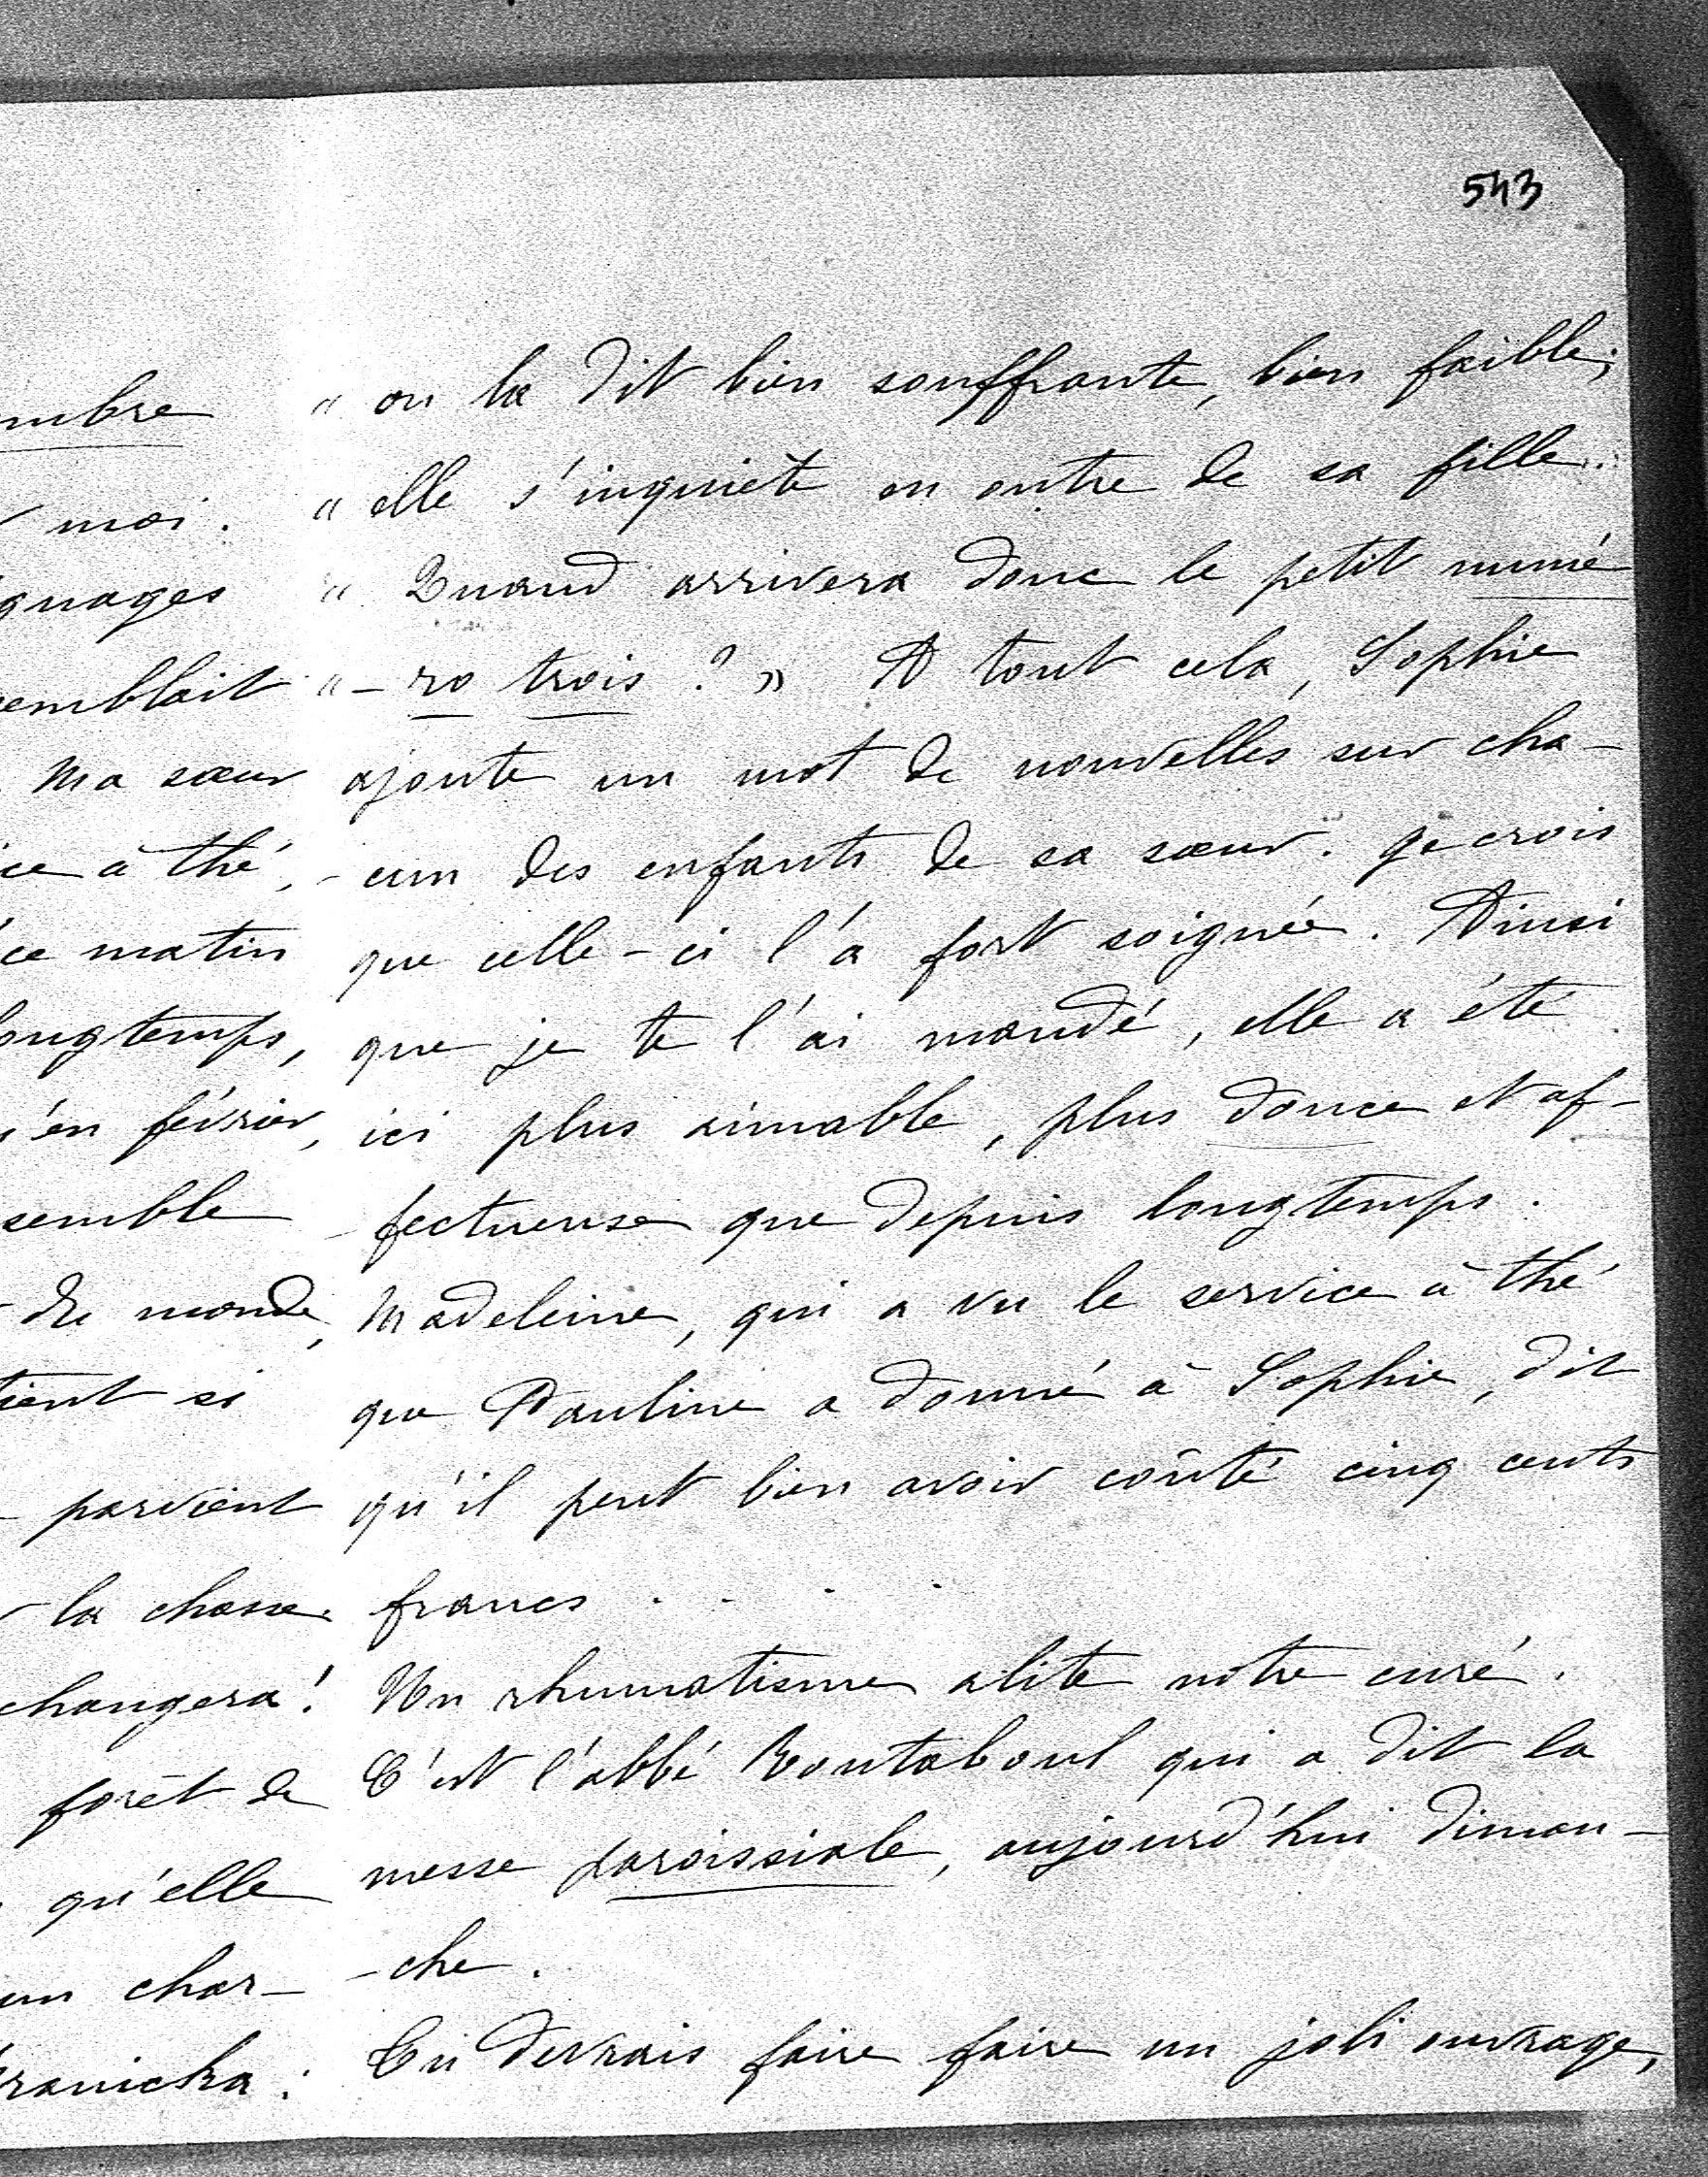 543
mbre
moi.
gnages
semblait
Ma sœur
ice à thé,
ce matin
longtemps,
'en février,
semble
du monde,
tient si
parvient
la chasse.
changera !
forêt de
qu'elle
un char-
ranicka :
" on la dit bien souffrante, bien faible ;
" elle s'inquiète en outre de sa fille.
" Quand arrivera donc le petit numé
" - ro trois ? » A tout cela, Sophie
ajoute un mot de nouvelles sur cha-
- cun des enfants de sa sœur. Je crois
que celle-ci l'a fort soignée. Ainsi
que je te l'ai mandé, elle a été
ici plus aimable, plus douce et af-
- fectueuse que depuis longtemps.
Madeleine, qui a vu le service à thé
que Pauline a donné à Sophie, dit
qu'il peut bien avoir coûté cinq cents
francs . .
Un rhumatisme alite notre curé.
C'est l'abbé Routaboul qui a dit la
messe paroissiale, aujourd'hui diman-
- che.
Tu devrais faire faire un joli ouvrage,